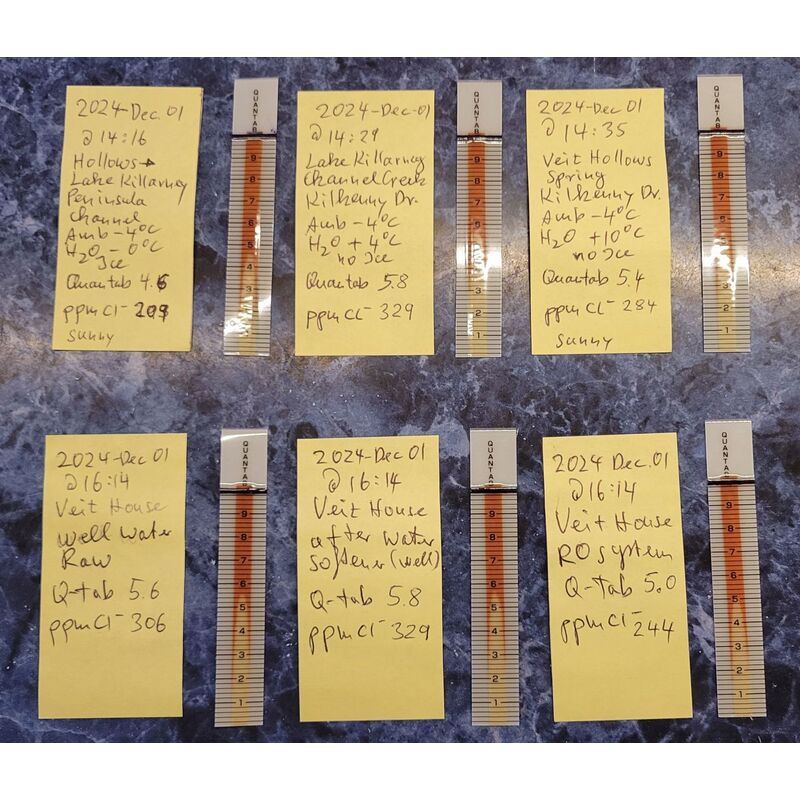 2024-Dec.01
@ 14:16
Hollows→
Lake Killarney
Peninsula
channel
Amb -4°C
H₂O - 0°C
Ice
Quantab 4.6
ppm Cl⁻ 209
sunny
QUANTAB
9
8
7
6
5
4
3
2
1
2024-Dec-01
@ 14:29
Lake Killarney
Channel Creek
Kilkenny Dr.
Amb -4°C
H₂O + 4°C
no Ice
Quantab 5.8
ppm Cl⁻ 329
QUANTAB
9
8
7
6
5
4
3
2
1
2024-Dec 01
@ 14:35
Veit Hollows
Spring
Kilkenny Dr.
Amb -4°C
H₂O +10°C
no Ice
Quantab 5.4
ppm Cl⁻ 284
sunny
QUANTAB
9
8
7
6
5
4
3
2
1
2024-Dec 01
@ 16:14
Veit House
well water
Raw
Q-tab 5.6
ppm Cl⁻ 306
QUANTAB
9
8
7
6
5
4
3
2
1
2024-Dec 01
@ 16:14
Veit House
after water
softener (well)
Q-tab 5.8
ppm Cl⁻ 329
QUANTAB
9
8
7
6
5
4
3
2
1
2024 Dec.01
@ 16:14
Veit House
RO system
Q-tab 5.0
ppm Cl⁻ 244
QUANTAB
9
8
7
6
5
4
3
2
1